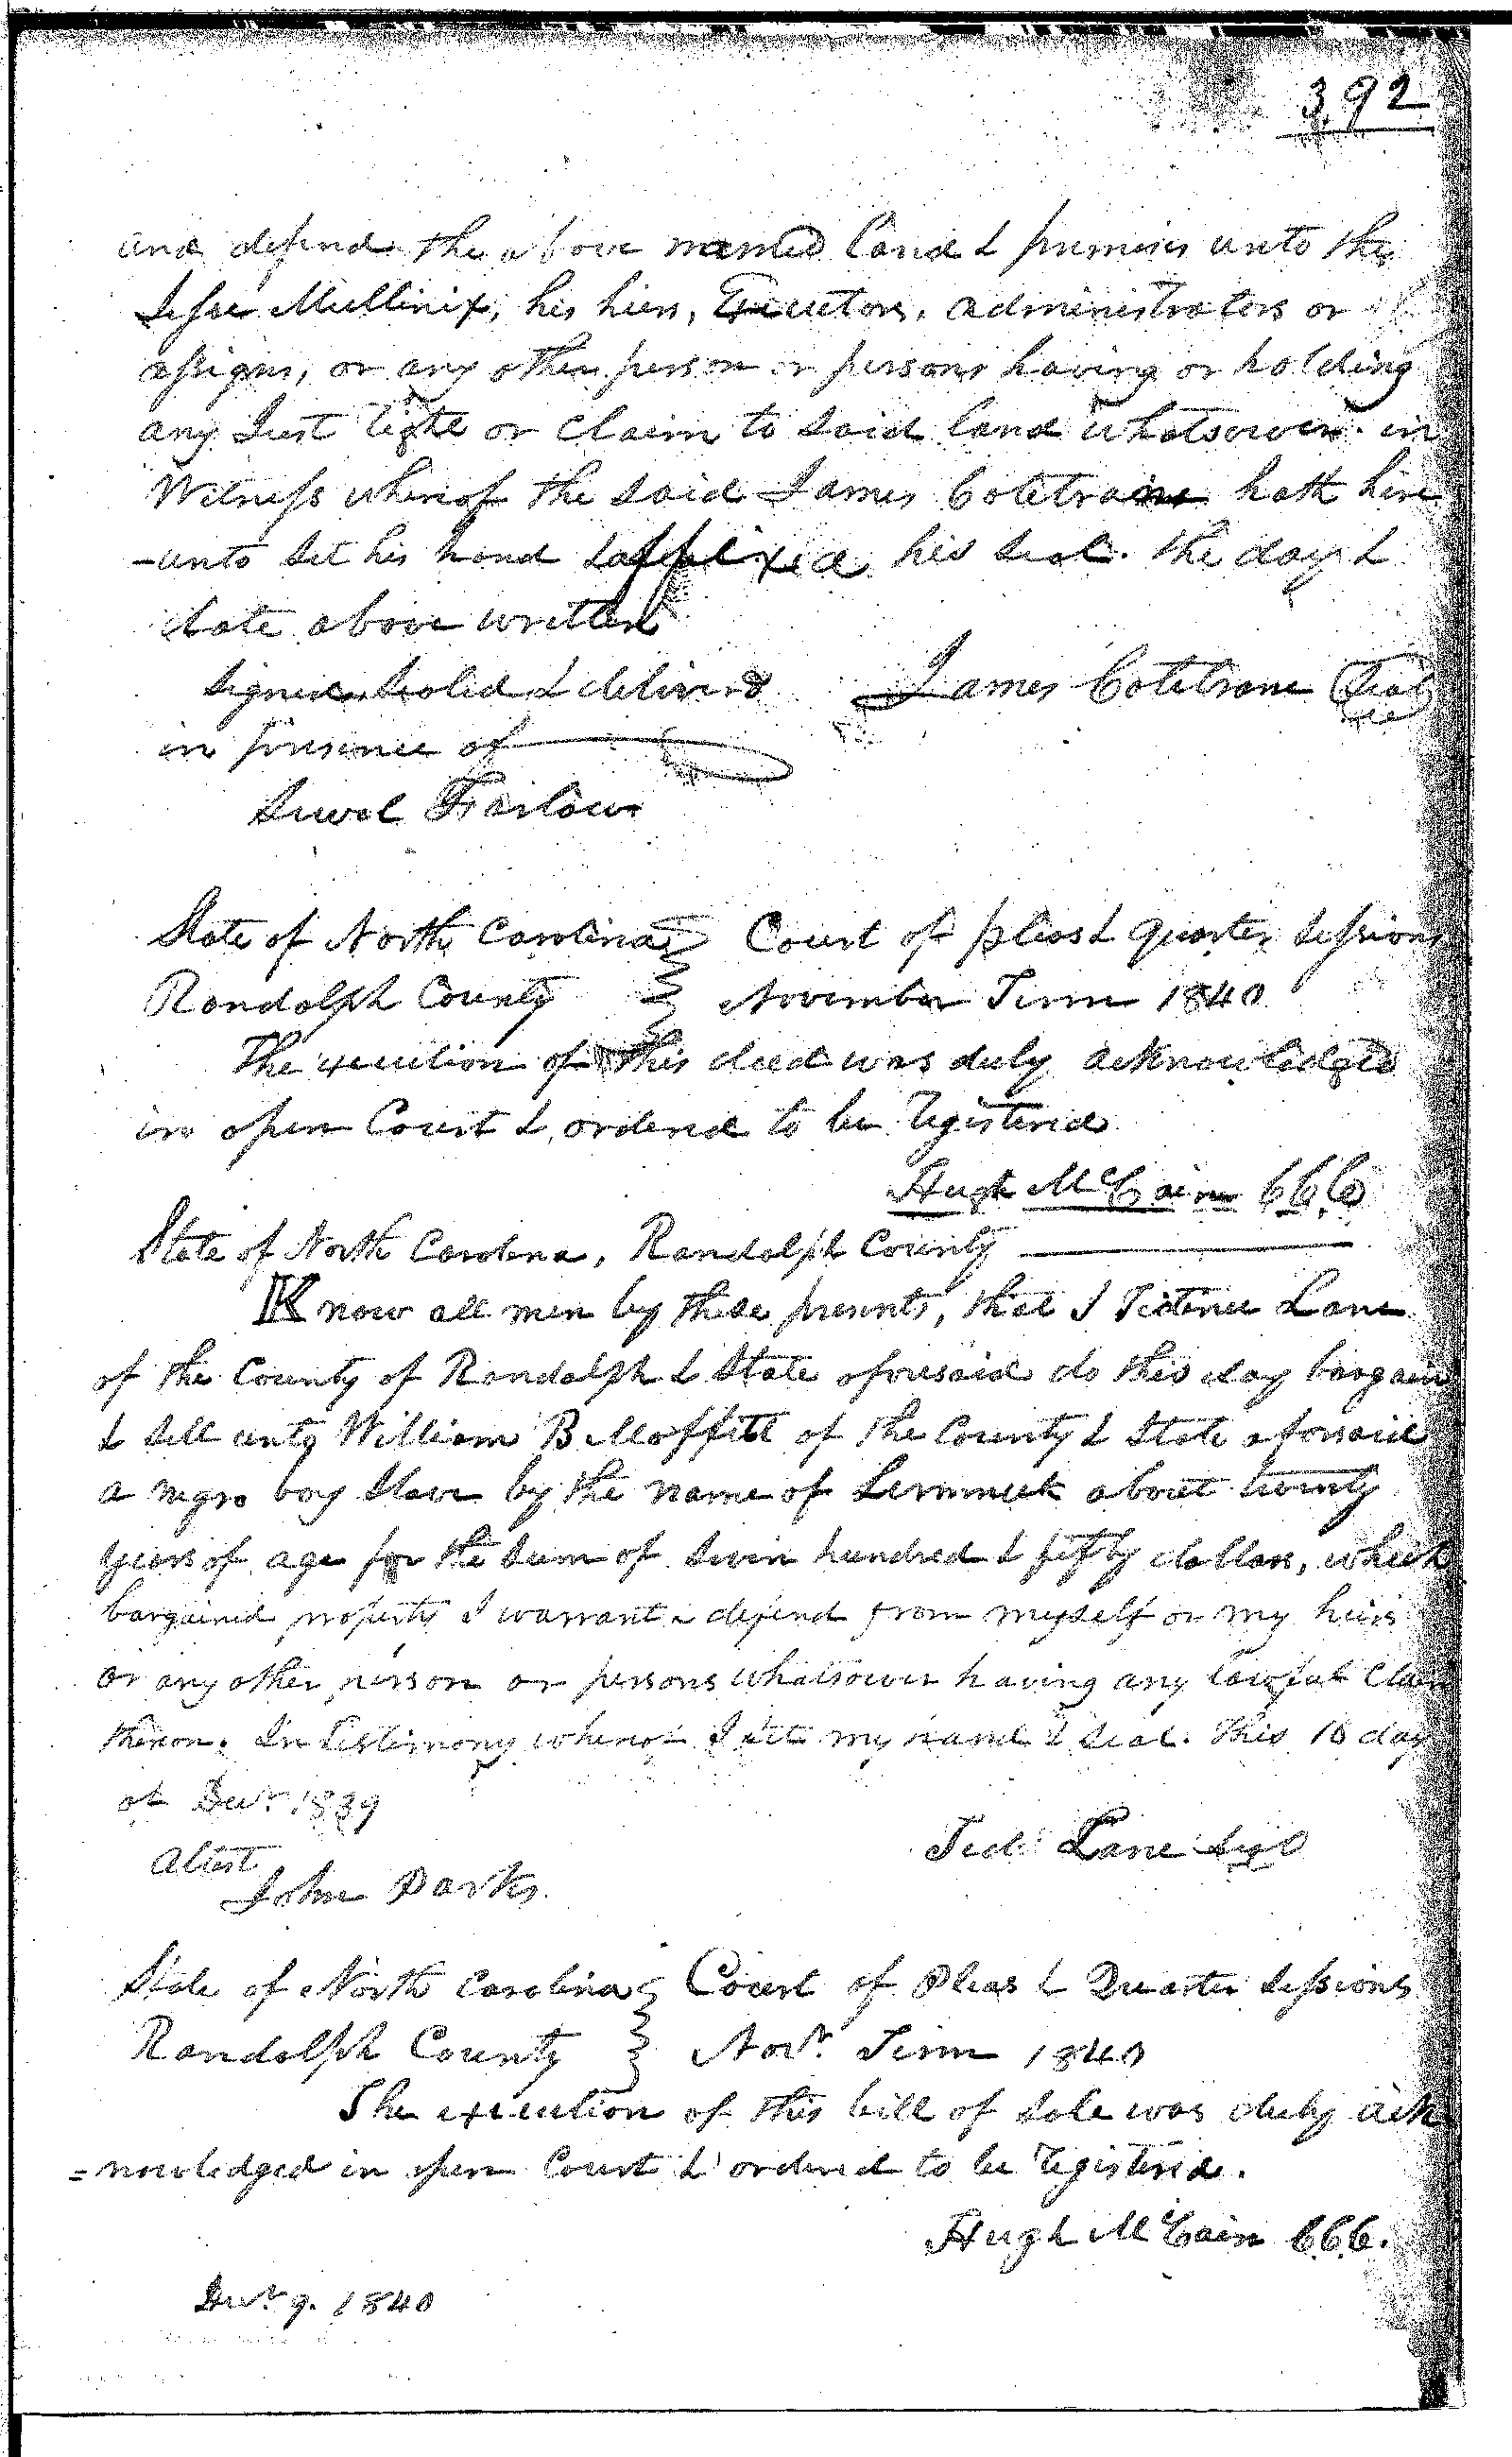 392
and defend the above named land & premises unto the
Jesse Mullinix, his hiers, Executors, administrators or
assigns, or any other person or persons having or holding
any Just title or Claim to said land whatsoever. in
Witness whereof the said James Coletrane hath here
-unto set his hand & affixed his seal. the day &
date above written
Signed Sealed & delivered James Coletrane Seal
in presence of
Sewel Farlow
State of North Carolina Court of pleas & quarter sessions
Randolph County November Term 1840
The execution of this deed was duly acknowledged
in open Court & ordered to be registered
Hugh McCain CCC
State of North Carolina, Randolph County
Know all men by these presents, that I Tidence Lane
of the County of Randolph & State aforesaid do this day bargain
& sell unto William B Moffitt of the County & State aforsaid
a negro boy slave by the name of about twenty
years of age for the sum of seven hundred & fifty dollars, which
bargained property I warrant & defend from myself or my heirs
or any other person or persons whatsoever having any lawful Claim
thereon. In testimony whereof I set my hand & seal. This 16 day
of Decr. 1839
Attest Tid Lane
John Parks
State of North Carolina Court of Pleas & Quarter Sessions
Randolph County Novr. Term 1840
The execution of this bill of sale was duly ack
=nowledged in open Court & ordered to be registered.
Hugh McCain CCC.
Decr 9. 1840